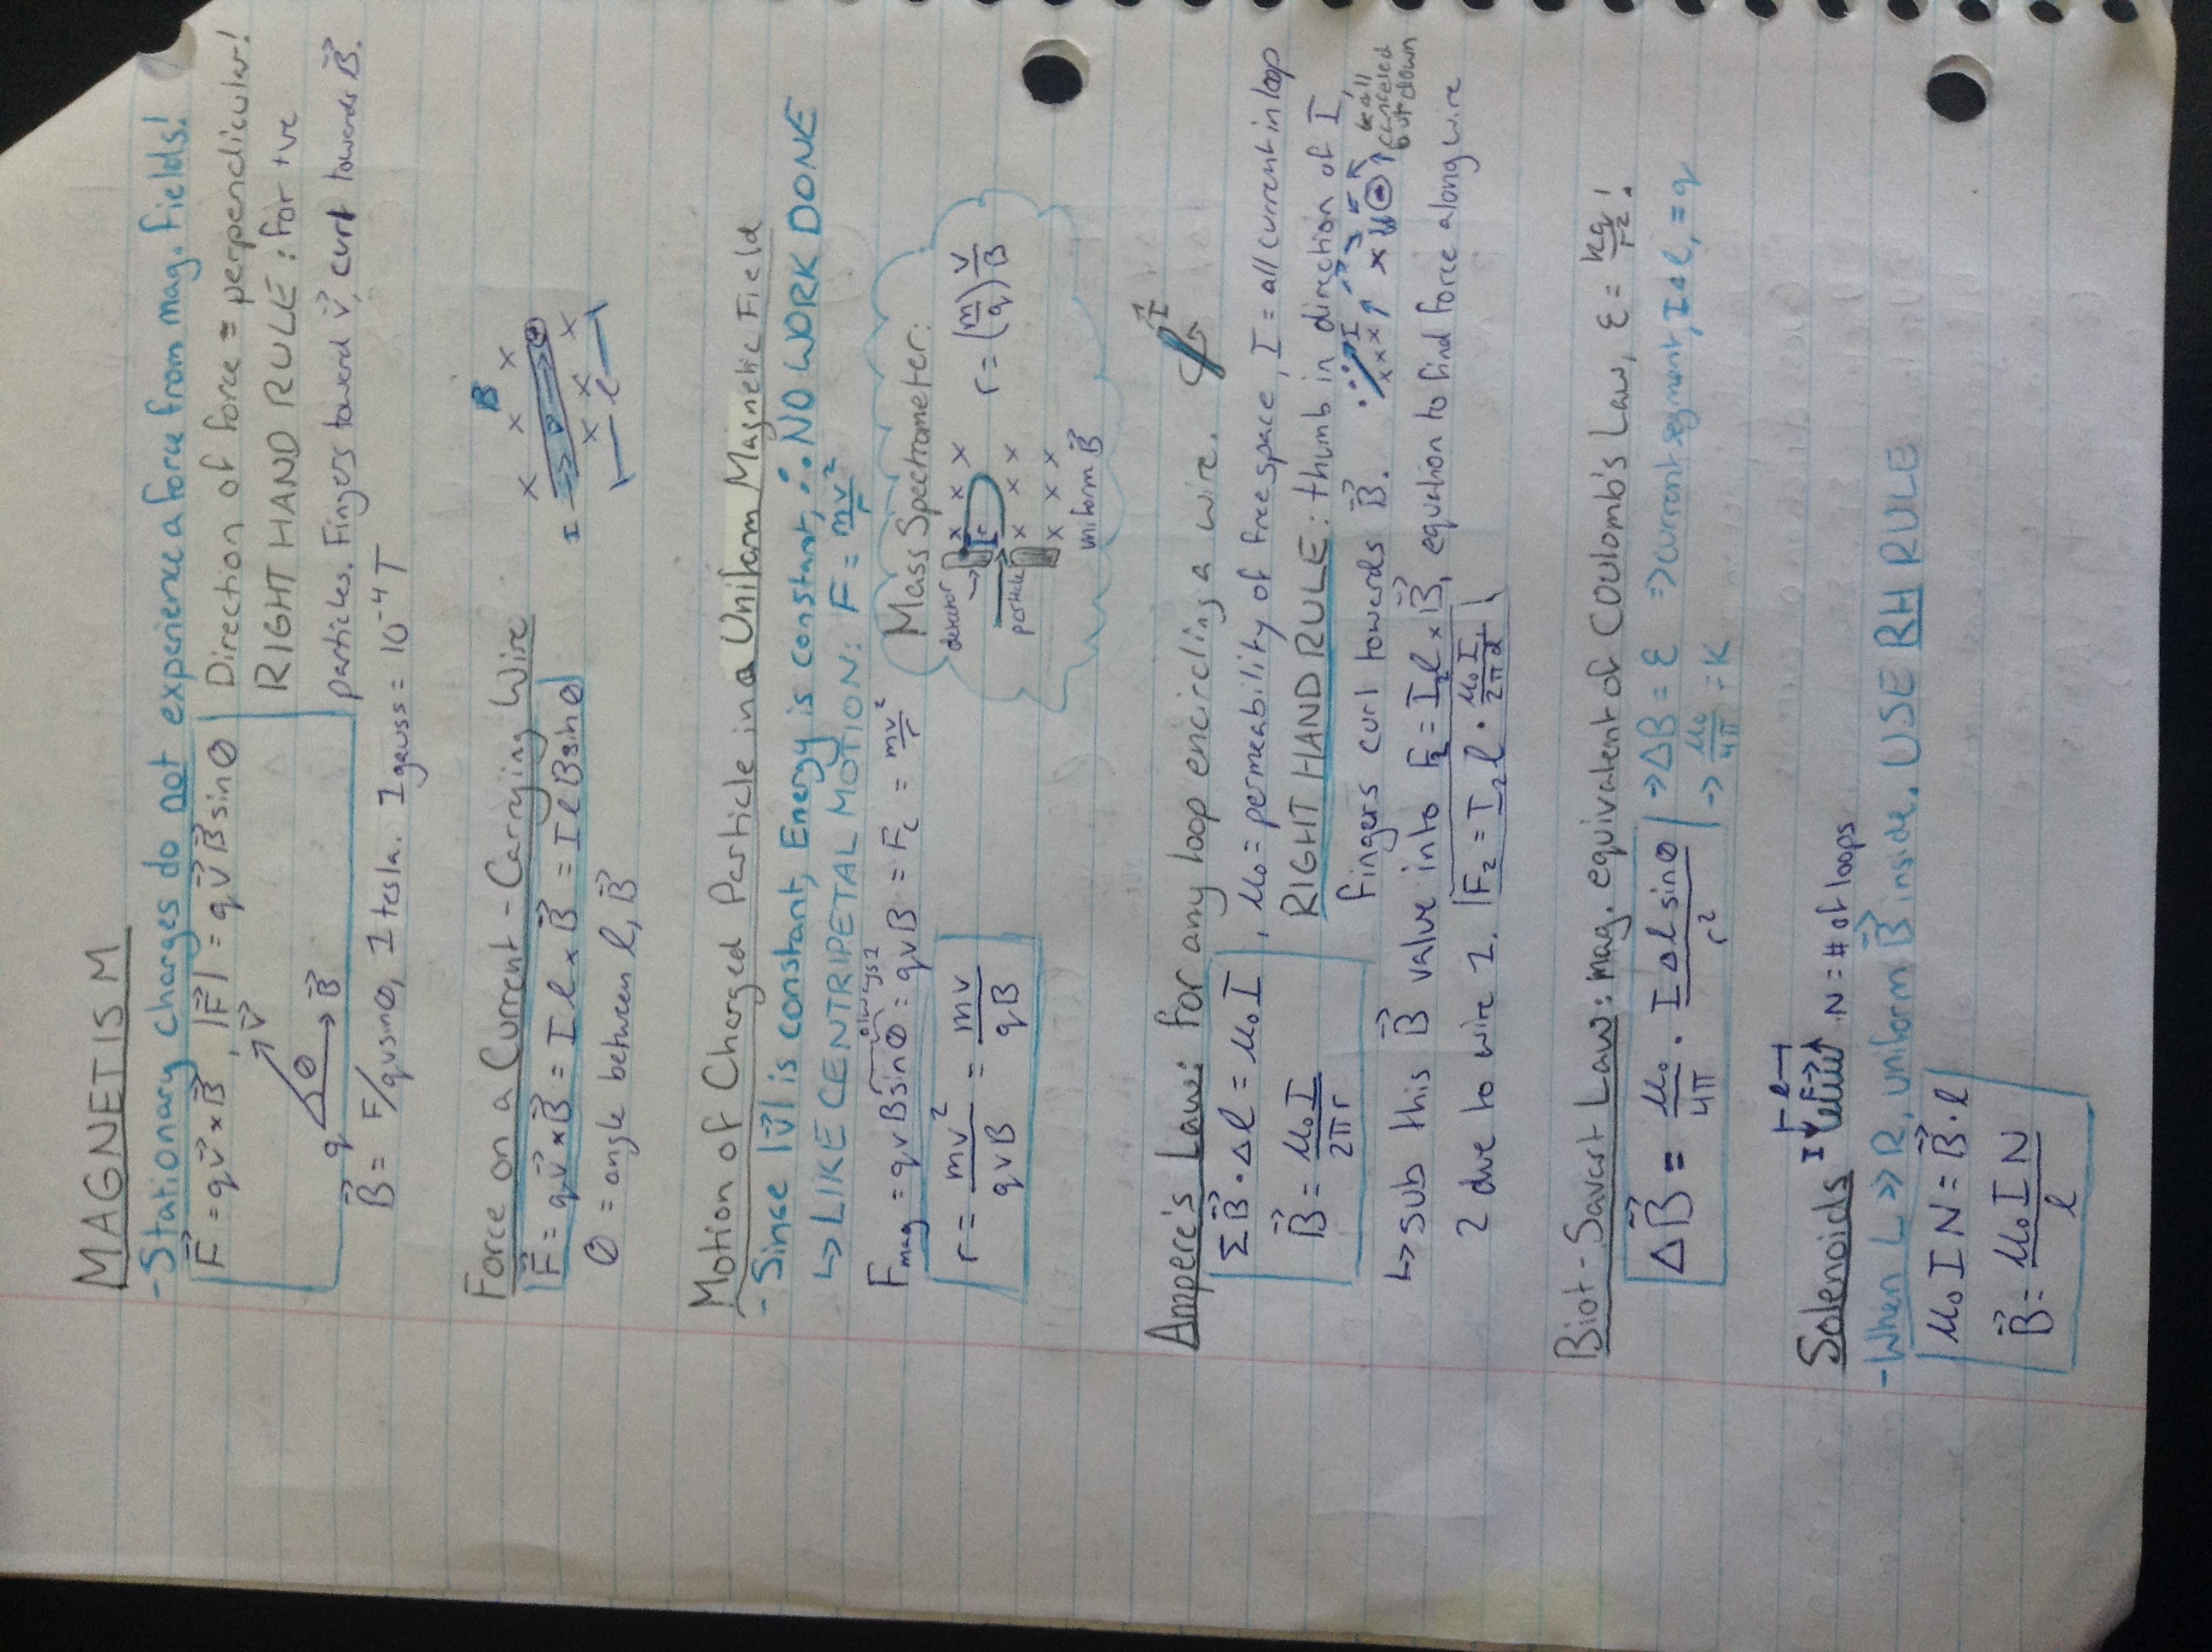 MAGNETISM
-Stationary charges do not experience a force from mag. fields!
F⃗ = qv⃗ × B⃗, |F⃗| = qv⃗B⃗sinθ
Direction of force = perpendicular!
RIGHT HAND RULE: for +ve
particles. Fingers toward v⃗, curl towards B⃗.
q θ v⃗ B⃗
B⃗ = F/qvsinθ, 1 tesla. 1gauss = 10⁻⁴ T
Force on a Current-Carrying Wire
F⃗ = qv⃗ × B⃗ = Il × B⃗ = IlBsinθ
θ = angle between l, B⃗
B
x x x
I v +
x x x
l
Motion of Charged Particle in a Uniform Magnetic Field
-Since |v⃗| is constant, Energy is constant, ∴ NO WORK DONE
↳ LIKE CENTRIPETAL MOTION: F = mv²/r
always 1
Fmag = qvBsinθ = qvB = Fc = mv²/r
r = mv²/qvB = mv/qB
Mass Spectrometer:
detector
x x x
r
particle
x x x
x x x
uniform B⃗
r = (m/q) v/B
Ampere's Law: For any loop encircling a wire.
I⃗
ΣB⃗·Δl = μ₀I, μ₀ = permeability of free space, I = all current in loop
B⃗ = μ₀I/2πr
RIGHT HAND RULE: thumb in direction of I,
fingers curl towards B⃗.
I
x x x
be all
canceled
but down
↳ sub this B⃗ value into F₂ = I₂l × B⃗₁ equation to find force along wire
2 due to wire 1. F₂ = I₂l · μ₀I₁/2πd
Biot-Savart Law: mag. equivalent of Coulomb's Law, ε = kq/r²!
ΔB⃗ = μ₀/4π · IΔl sinθ/r²
→ΔB = ε ⇒ current segment, IΔl, = q
→ μ₀/4π = K
Solenoids I l N = # of loops
-When L >> R, uniform B⃗ inside. USE RH RULE
μ₀IN = B⃗·l
B⃗ = μ₀IN/l